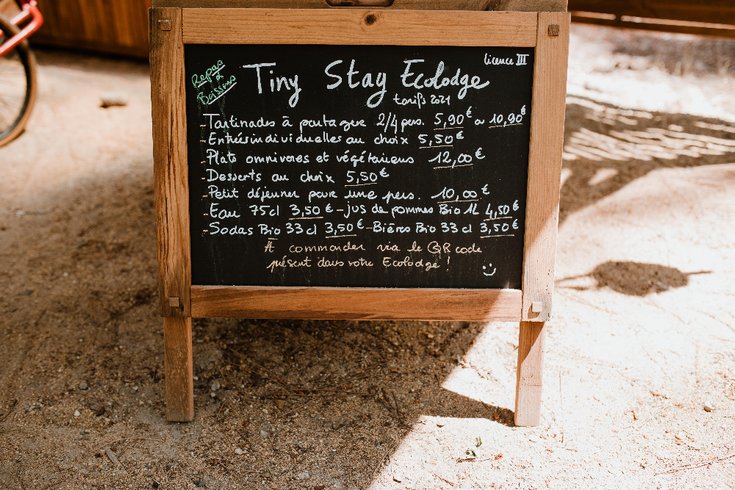 Repas & Boissons
Licence III
Tiny Stay Ecolodge
tarifs 2021
- Tartinades à partager 2/4 pers. 5,90€ à 10,90€
- Entrées individuelles au choix 5,50€
- Plats omnivores et végétariens 12,00€
- Desserts au choix 5,50€
- Petit déjeuner pour une pers. 10,00€
- Eau 75cl 3,50€ - jus de pommes Bio 1L 4,50€
- Sodas Bio 33cl 3,50€ - Bières Bio 33cl 3,50€
À commander via le QR code
présent dans votre Ecolodge !